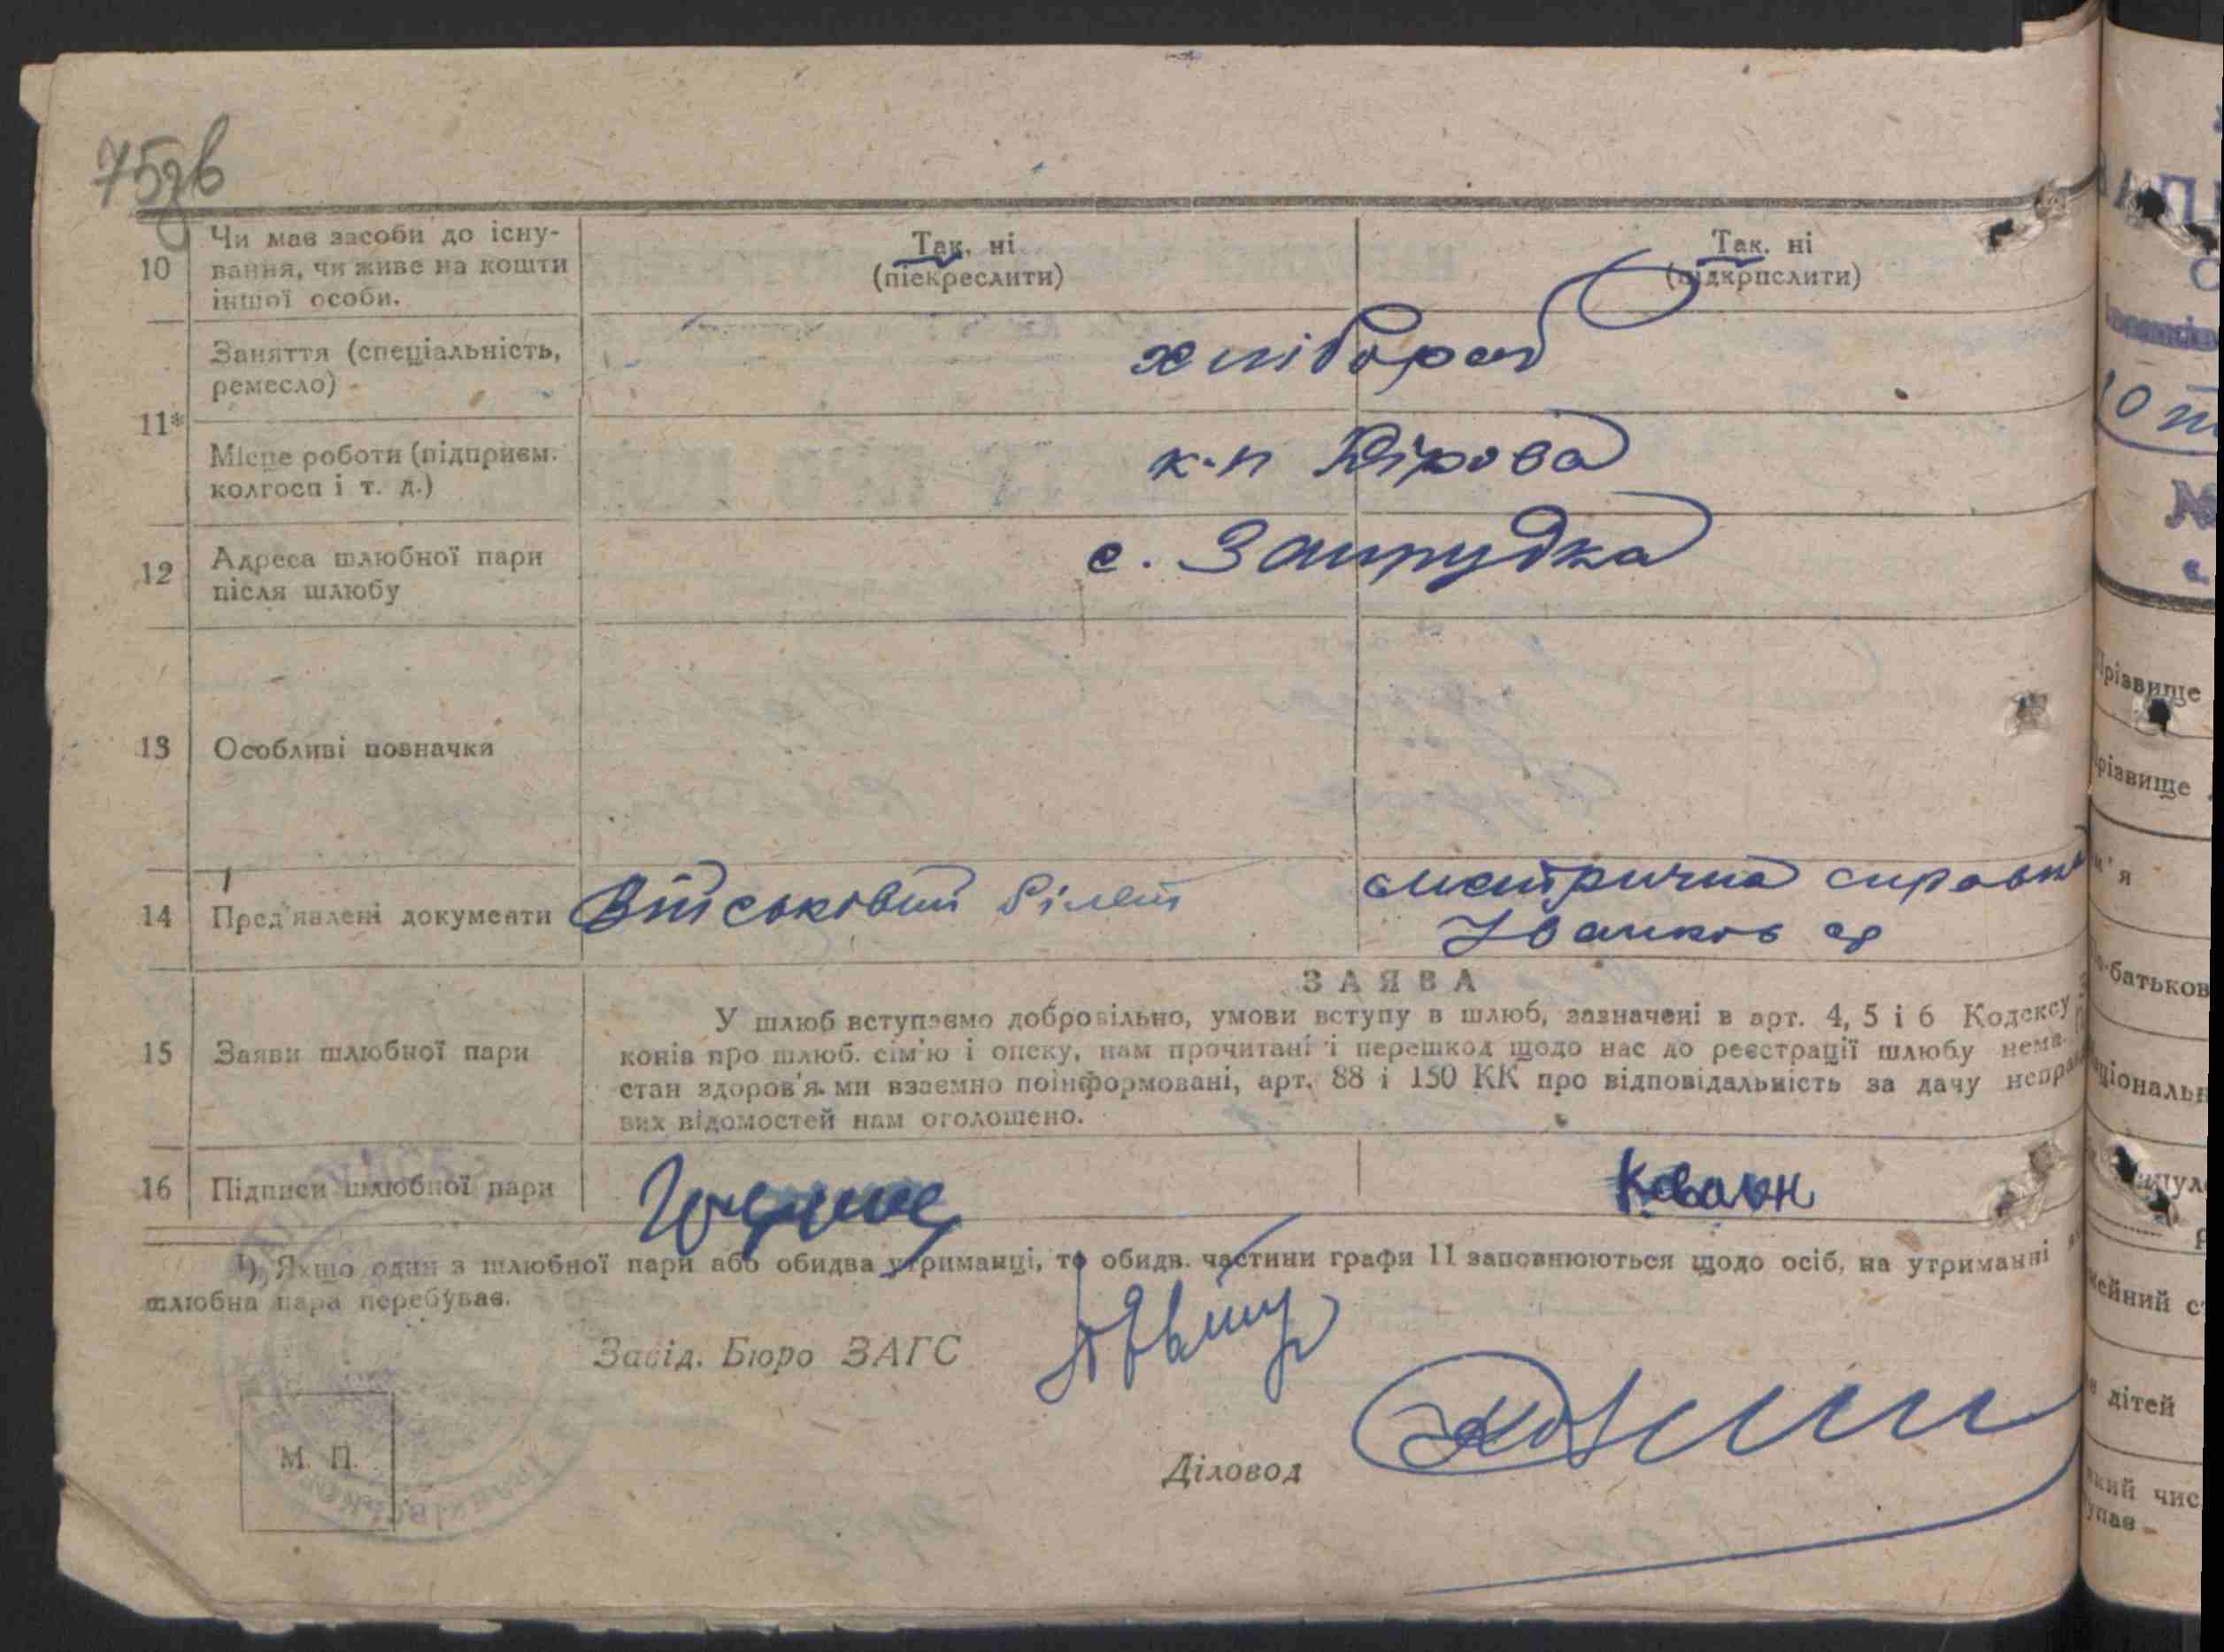 75зв
10 Чи має засоби до існу-
вання, чи живе на кошти
іншої особи.
Так, ні
(піекреслити)
Так, ні
(підкрпслити)
11* Заняття (спеціальність,
ремесло)
хлібороб
Місце роботи (підприєм.
колгосп і т. д.)
к-п Кірова
12 Адреса шлюбної пари
після шлюбу
с. Запрудка
13 Особливі позначки
14 Пред'явлені документи
Військовий білет
метрична справка
Іванков ср
15 Заяви шлюбної пари
ЗАЯВА
У шлюб вступаємо добровільно, умови вступу в шлюб, зазначені в арт. 4, 5 і 6 Кодексу
конів про шлюб. сім'ю і опеку, нам прочитані і перешкод щодо нас до реєстрації шлюбу нема.
стан здоров'я ми взаємно поінформовані, арт. 88 і 150 КК про відповідальність за дачу неправ
вих відомостей нам оголошено.
16 Підписи шлюбної пари
¹) Якшо один з шлюбної пари або обидва утриманці, то обидв. частини графи 11 заповнюються щодо осіб, на утриманні
шлюбна пара перебуває.
Завід. Бюро ЗАГС
Діловод
М. П.
різвище
різвище
м'я
о-батьков
аціональн
мейний с
дітей